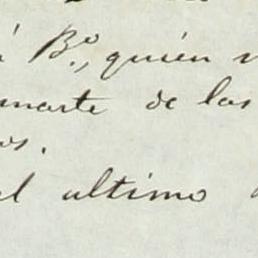 á B.º, quién
marte de las
os.
el ultimo